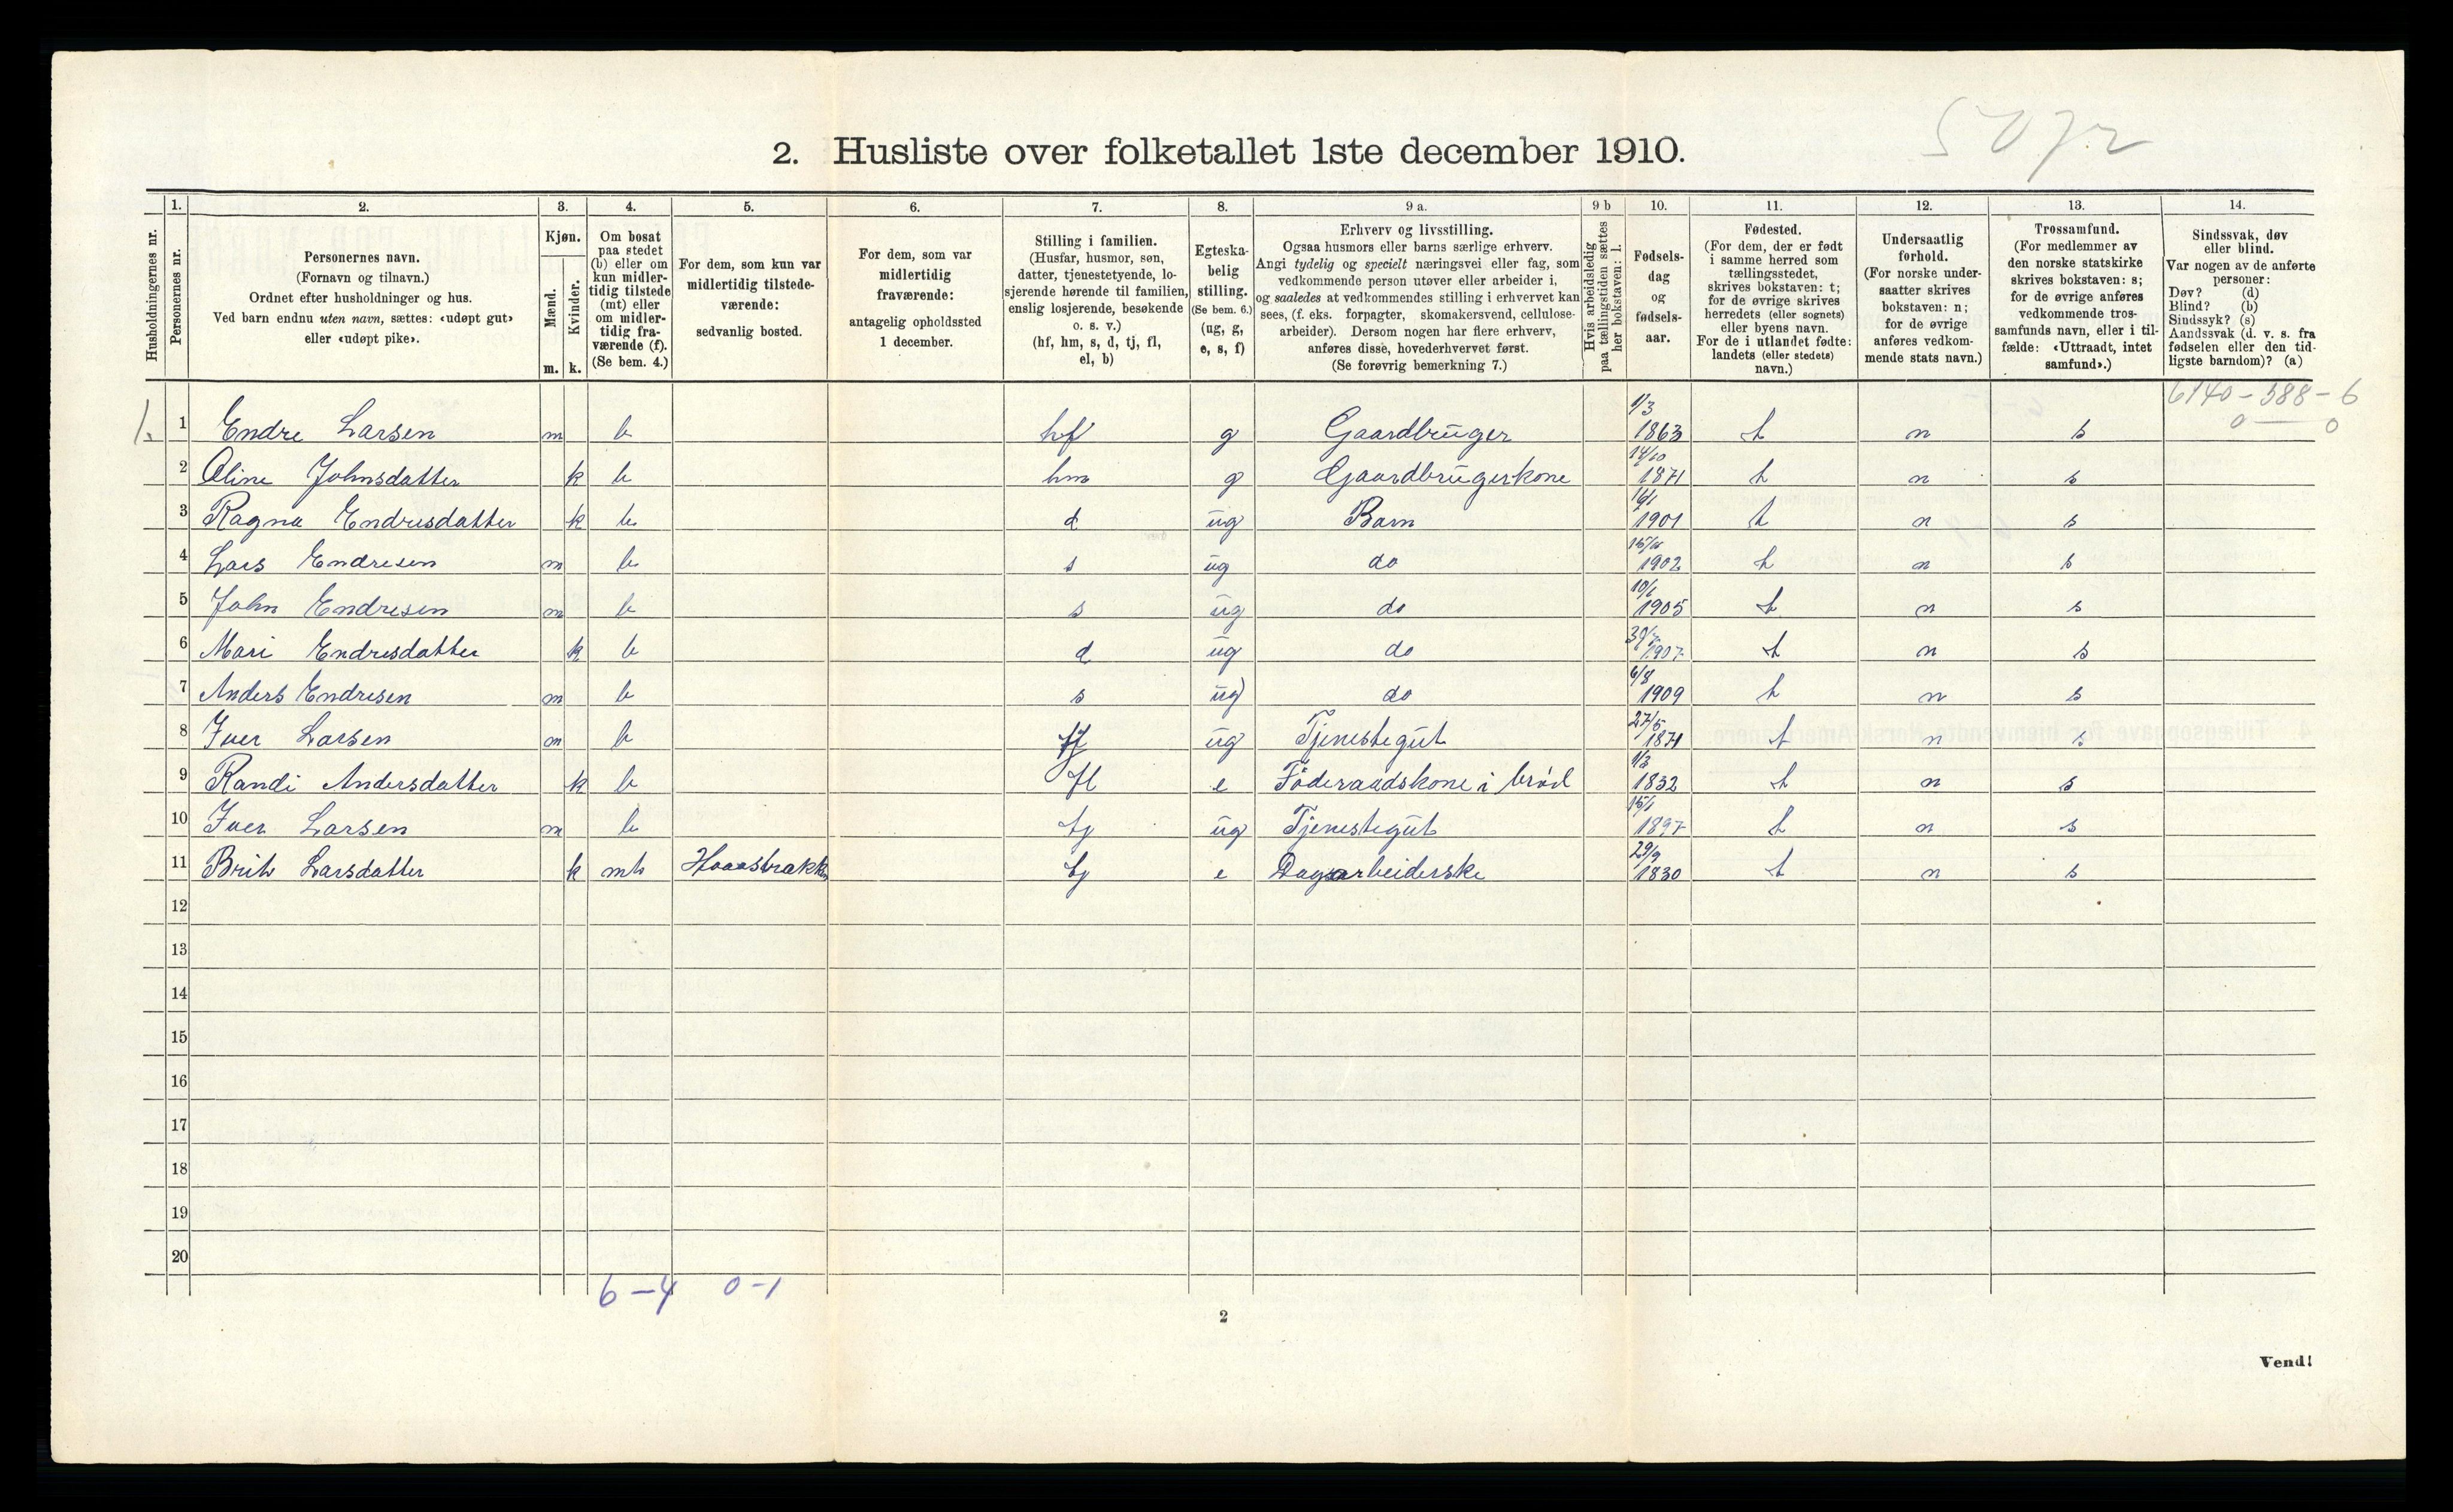 50 jr
2. Husliste over folketallet 1ste december 1910.
Husholdningernes nr.
1.
Personernes nr.
2.
Personernes navn.
(Fornavn og tilnavn.)
Ordnet efter husholdninger og hus.
Ved barn endnu uten navn, sættes: «udøpt gut»
eller «udøpt pike».
3.
Kjøn.
Mænd.
Kvinder.
m. k.
4.
Om bosat
paa stedet
(b) eller om
kun midler-
tidig tilstede
(mt) eller
om midler-
tidig fra-
værende (f).
(Se bem. 4.)
5.
For dem, som kun var
midlertidig tilstede-
værende:
sedvanlig bosted.
6.
For dem, som var
midlertidig
fraværende:
antagelig opholdssted
1 december.
7.
Stilling i familien.
(Husfar, husmor, søn,
datter, tjenestetyende, lo-
sjerende hørende til familien,
enslig losjerende, besøkende
o. s. v.)
(hf, hm, s, d, tj, fl,
el, b)
8.
Egteska-
belig
stilling.
(Se bem. 6.)
(ug, g,
e, s, f)
9 a.
Erhverv og livsstilling.
Ogsaa husmors eller barns særlige erhverv.
Angi tydelig og specielt næringsvei eller fag, som
vedkommende person utøver eller arbeider i,
og saaledes at vedkommendes stilling i erhvervet kan
sees, (f. eks. forpagter, skomakersvend, cellulose-
arbeider). Dersom nogen har flere erhverv,
anføres disse, hovederhvervet først.
(Se forøvrig bemerkning 7.)
9 b
Hvis arbeidsledig
paa tællingstiden sættes
her bokstaven: l.
10.
Fødsels-
dag
og
fødsels-
aar.
11.
Fødested.
(For dem, der er født
i samme herred som
tællingsstedet,
skrives bokstaven: t;
for de øvrige skrives
herredets (eller sognets)
eller byens navn.
For de i utlandet fødte:
landets (eller stedets)
navn.)
12.
Undersaatlig
forhold.
(For norske under-
saatter skrives
bokstaven: n;
for de øvrige
anføres vedkom-
mende stats navn.)
13.
Trossamfund.
(For medlemmer av
den norske statskirke
skrives bokstaven: s;
for de øvrige anføres
vedkommende tros-
samfunds navn, eller i til-
fælde: «Uttraadt, intet
samfund».)
14.
Sindssvak, døv
eller blind.
Var nogen av de anførte
personer:
Døv? (d)
Blind? (b)
Sindssyk? (s)
Aandssvak (d. v. s. fra
fødselen eller den tid-
ligste barndom)? (a)
6140 - 388 - 6
0 — 0
1. 1 Endre Larsen m b hf g Gaardbruger 1/3 1863 t n s
2 Oline Johnsdatter k b hm g Gaardbrugerkone 14/10 1871 t n s
3 Ragna Endresdatter k b d ug Barn 1901 t n s
4 Lars Endresen m b s ug do 1902 t n s
5 John Endresen m b s ug do 1905 t n s
6 Mari Endresdatter k b d ug do 1907 t n s
7 Anders Endresen m b s ug do 6/8 1909 t n s
8 Iver Larsen m b tj ug Tjenestegut 27/5 1871 t n s
9 Randi Andersdatter k b fl e Föderaadskone i brød 1/3 1832 t n s
10 Iver Larsen m b tj ug Tjenestegut 15/1 1897 t n s
11 Brit Larsdatter k mt tj e Dagsarbeiderske 29/9 1830 t n s
12
13
14
15
16
17
18
19
20
6 - 4 0 - 1
2
Vend!